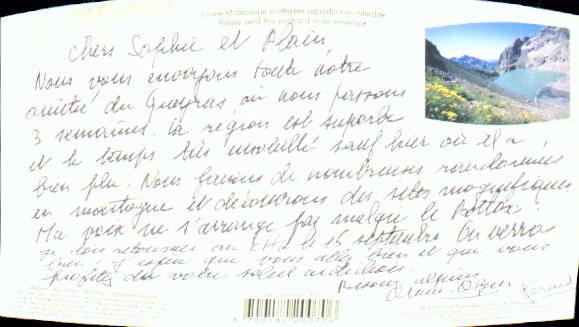 Forme et découpe protégées reproduction interdite
Please send this postcard in an envelope
Chers Sophie et Alain,
Nous vous envoyons toute notre
amitié du Queyras, où nous passons
3 semaines. La région est superbe
et le temps très ensoleillé sauf hier où il a
bien plu. Nous faisons de nombreuses randonnées
en montagne et découvrons des sites magnifiques
Ma voix ne s'arrange pas malgré le Botox.
Je dois retourner au CHU le 15 septembre. On verra
bien! J'espère que vous allez bien et que vous
profitez de votre soleil
Bisous alpins
Gérard